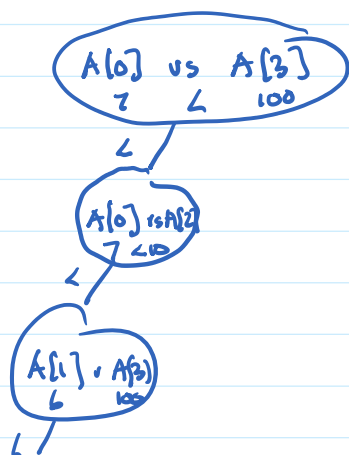 A[0] vs A[3]
7 < 100
<
A[0] vs A[2]
7 < 10
<
A[1] v A[3]
6 100